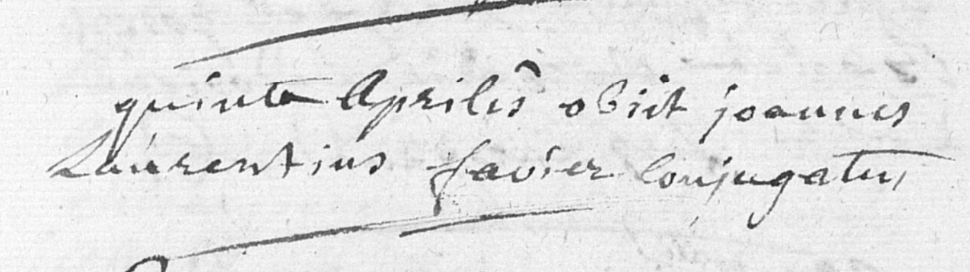 quinta Aprilis obiit joannes
Laurentius favier Conjugatus